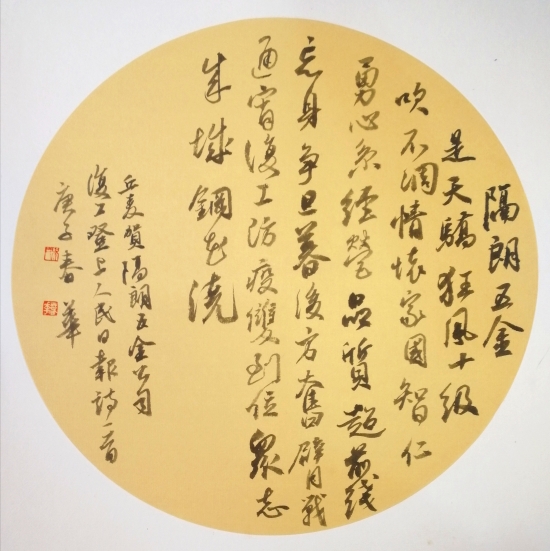 隔朗五金
是天驕狂風十级
吹不凋情懷家國智仁
勇心系經營品質超前线
忘身争旦暮後方奮臂戰
通宵復工防疫雙到位眾志
成城鋼花澆
丘麦賀隔朗五金公司
復工登上人民日報詩一首
庚子春華